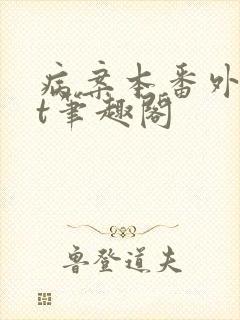 病案本番外
t笔趣阁
鲁登道夫